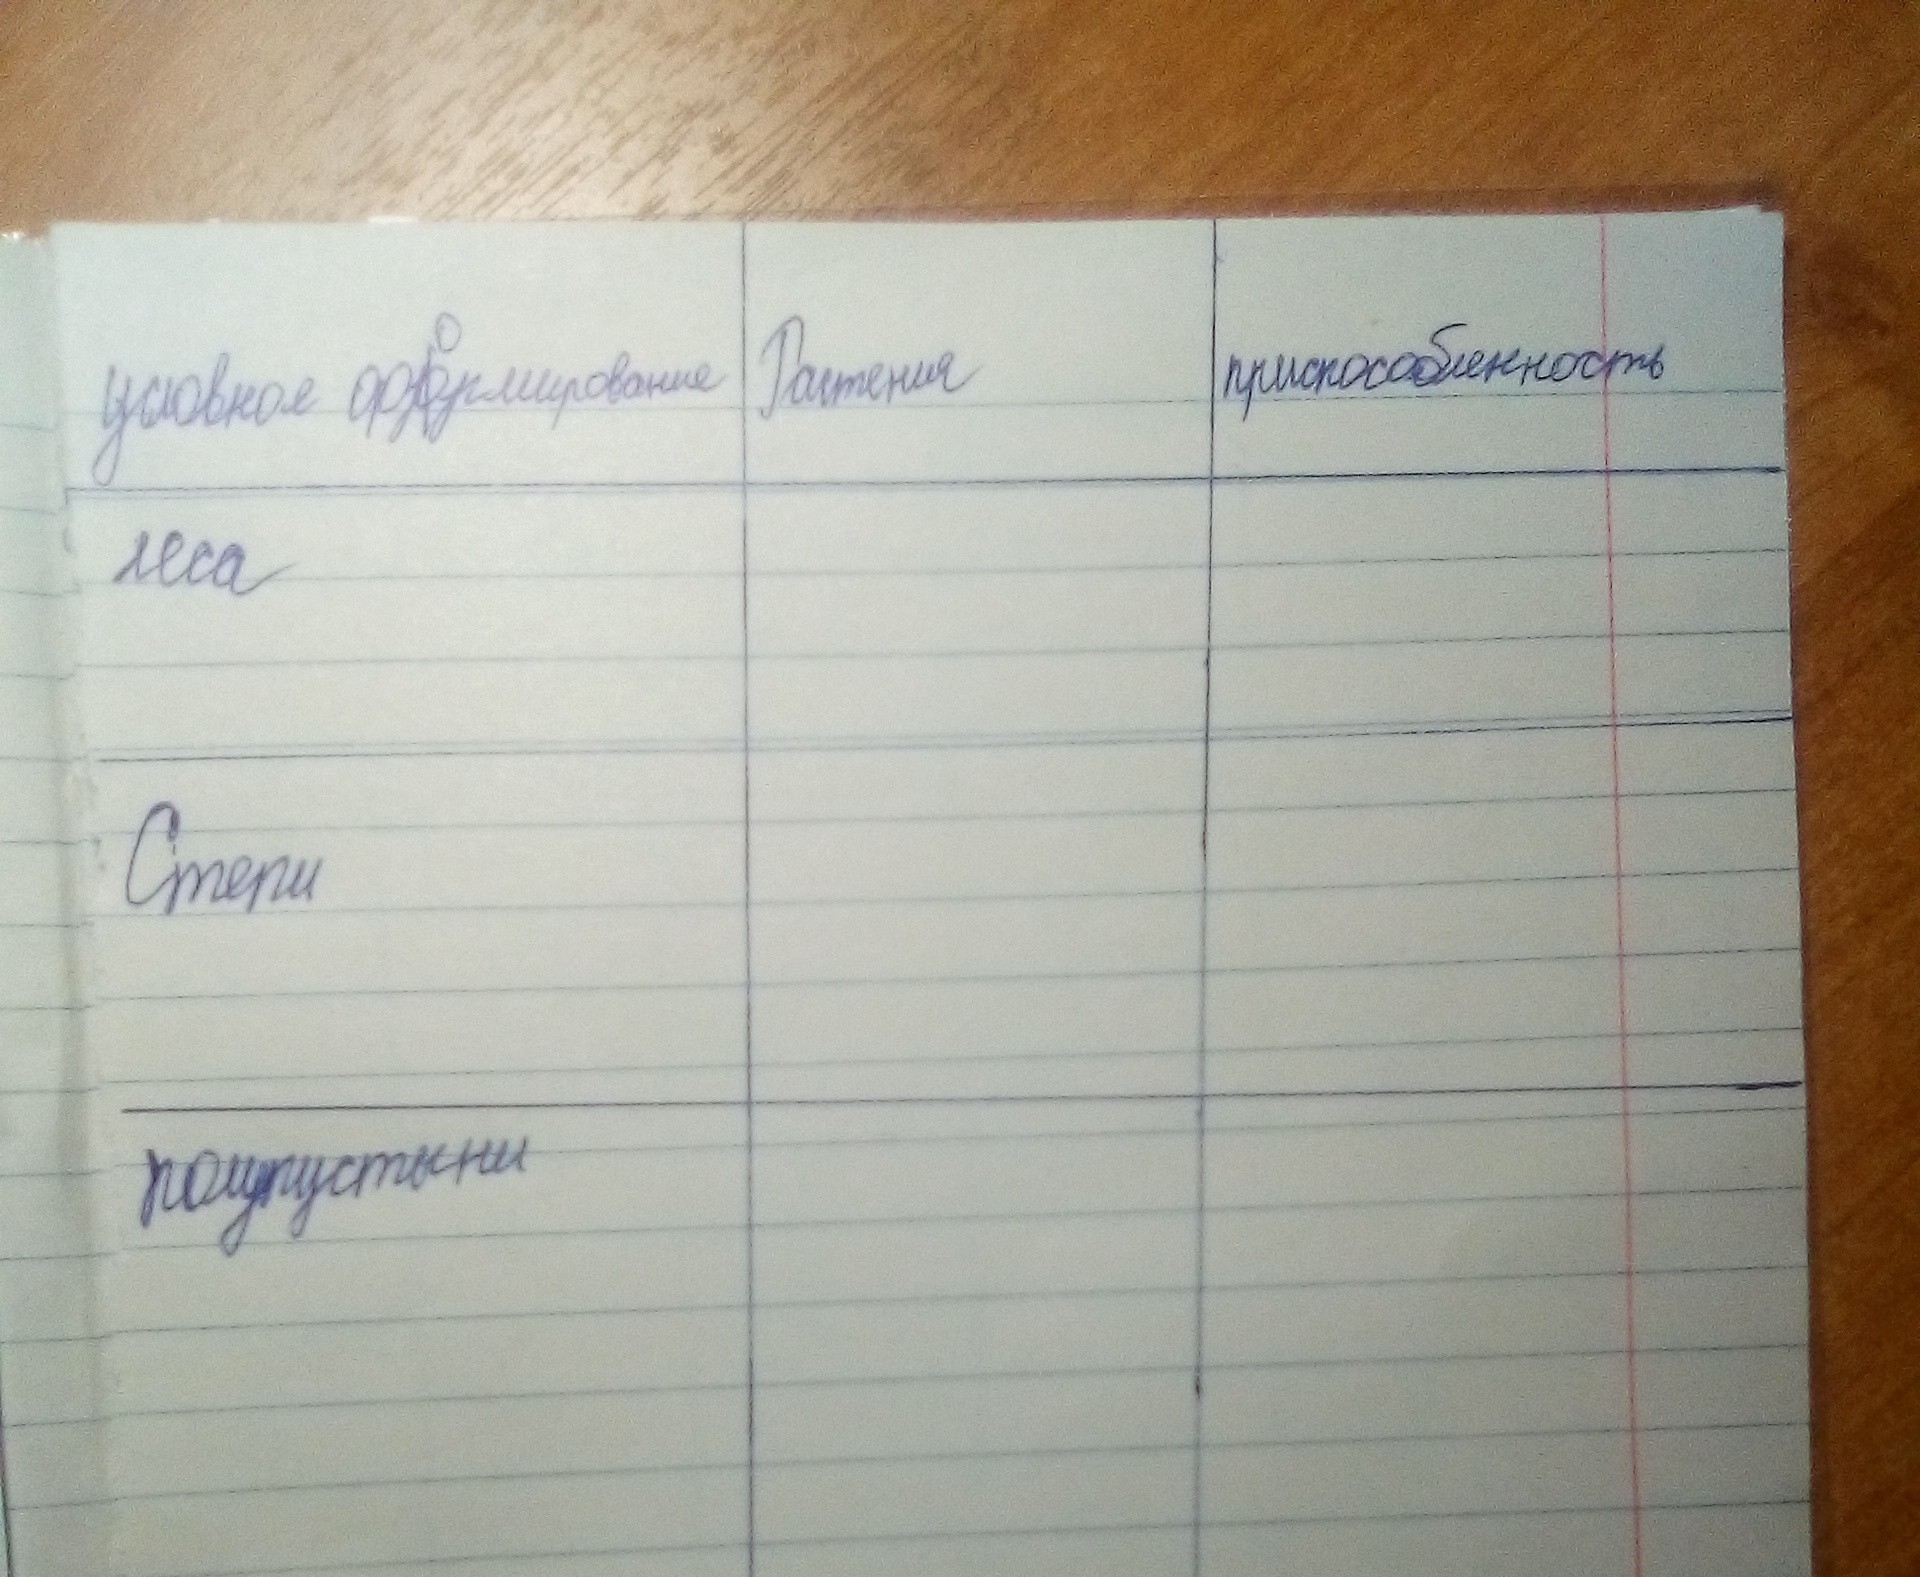 условное формирование Растения приспособленность
леса
Степи
полупустыни